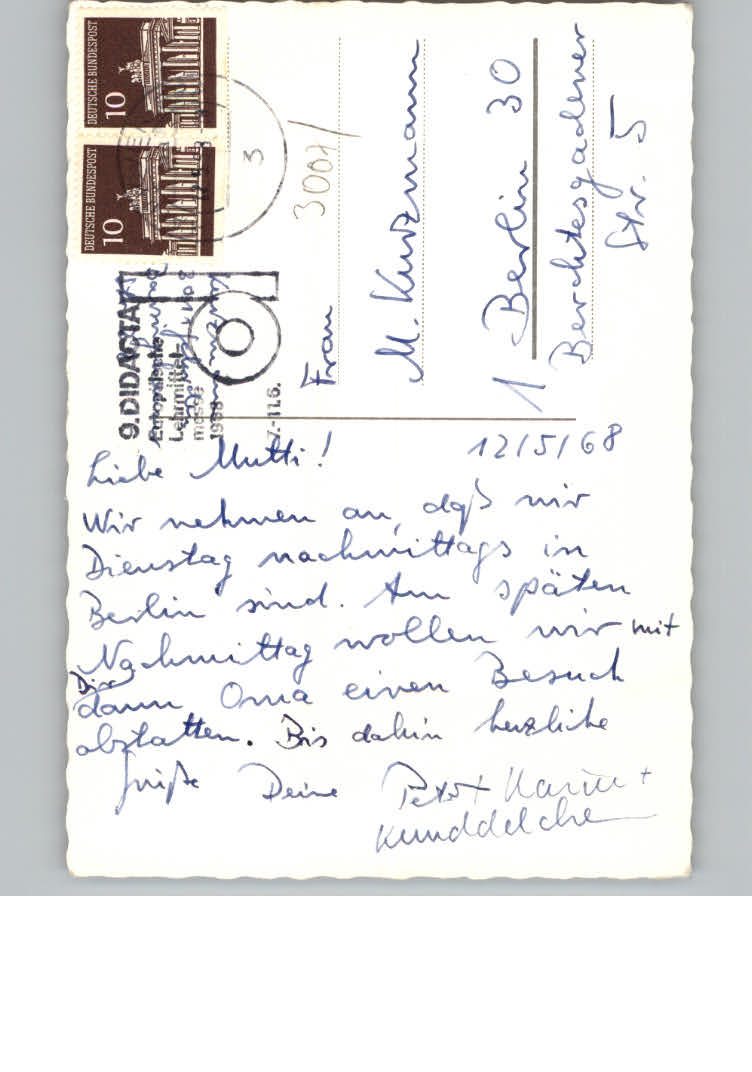 Liebe Mutti! 12/5/68
Wir nehmen an, daß wir
Dienstag nachmittags in
Berlin sind. Am späten
Nachmittag wollen wir mit
Dir
dann Oma einen Besuch
abstatten. Bis dahin herzliche
Grüße Deine Peter + Karin +
Kunddelchen
DEUTSCHE BUNDESPOST
10
DEUTSCHE BUNDESPOST
10
3
9. DIDACTA
Europäische
Lehrmittel-
messe
1968
7.-11.6.
3007/
Frau
M. Kurzmann
1 Berlin 30
Berchtesgadener
Str. 5